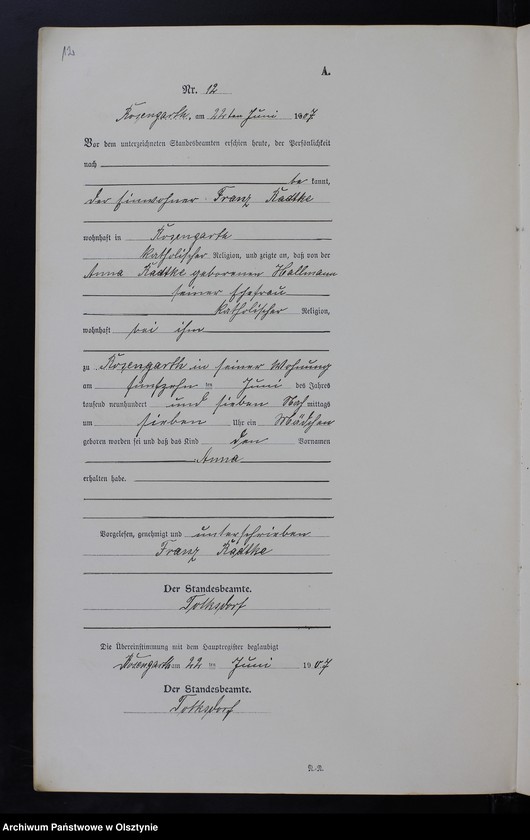 12a
A.
Nr. 12
Rosengarth, am 22ten Juni 1907
Vor dem unterzeichneten Standesbeamten erschien heute, der Persönlichkeit
nach
be kannt,
der Einwohner Franz Kadtke
wohnhaft in Rosengarth
katholischer Religion, und zeigte an, daß von der
Anna Kadtke geborenen Hallmann
seiner Ehefrau
katholischer Religion,
wohnhaft bei ihm
zu Rosengarth in seiner Wohnung
am fünfzehn ten Juni des Jahres
tausend neunhundert und sieben Nach mittags
um sieben Uhr ein Mädchen
geboren worden sei und daß das Kind den Vornamen
Anna
erhalten habe.
Vorgelesen, genehmigt und unterschrieben
Franz Kadtke
Der Standesbeamte.
Tolksdorf
Die Übereinstimmung mit dem Hauptregister beglaubigt
Rosengarth am 22 ten Juni 1907
Der Standesbeamte.
Tolksdorf
Archiwum Państwowe w Olsztynie